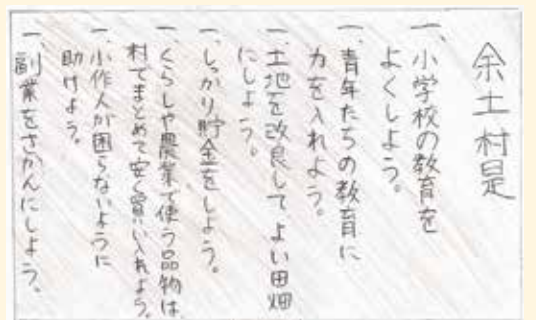 余土村是
一、小学校の教育を
よくしよう。
一、青年たちの教育に
力を入れよう。
一、土地を改良してよい田畑
にしよう。
一、しっかり貯金をしよう。
一、くらしや農業で使う品物は
村でまとめて安く買い入れよう。
一、小作人が困らないように
助けよう。
一、副業をさかんにしよう。